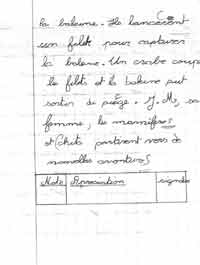 la baleine. Ils lancèrent
un filet pour capturer
la baleine. Un crabe coupe
le filet et la baleine put
sortir du piège. J. M, sa
femme, les mammifères
et partirent vers de
nouvelles aventures
Note Appréciation signature